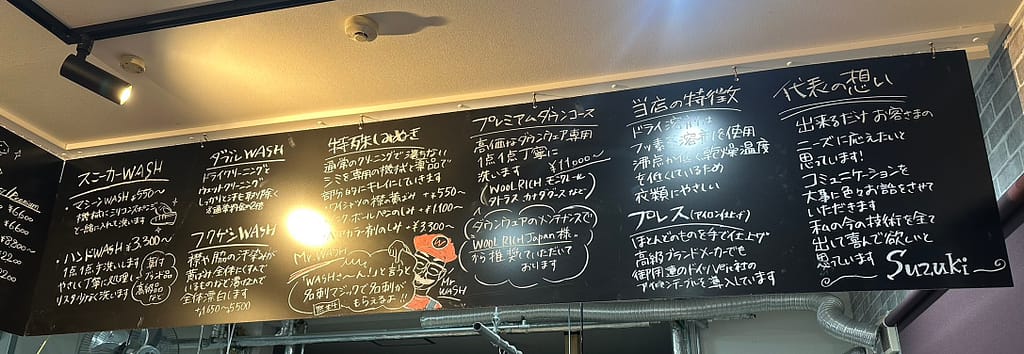 ¥6600
¥6600
¥8200
スニーカーWASH
・マシーンWASH ¥550〜
機械にシリコンボールを
一緒に入れて洗います
・ハンドWASH ¥3300〜
1点1点手洗します
やさしく丁寧に処理し
リスク少なく洗います
革付
ブランド品
高級品
など
ダブルWASH
ドライクリーニングと
ウェットクリーニング
しっかりと汗を取り除く
※通常料金の2倍
フクゲンWASH
襟や脇の汗ジミが
黄ばみ全体にくすんで
いるものなど漂白して
全体漂白します
+¥1650〜5500
特殊しみぬき
通常のクリーニングで落ちない
シミを専用の機械と薬品で
部分的にキレイにしていきます
ワイシャツの襟の黄ばみ +¥550〜
ボールペなのしみ +¥1100〜
カラー剤のしみ +¥3300〜
Mr WASH
「WASHさ〜ん!」と言うと
名刺マジックで名刺が
もらえるよ!!
Mr
WASH
プレミアムダウンコース
高価なダウンウェア専用
1点1点丁寧に
洗います ¥11000〜
WOOL RICH モンクレール
タトラス カナダグースなど
ダウンウェアのメンテナンスで
WOOL RICH Japan 様
から推奨していただいて
おります
当店の特徴
ドライ溶剤は
フッ素 溶剤を使用
沸点がひくく乾燥温度
を低くしているため
衣類にやさしい
プレス(アイロン仕上げ)
ほとんどのものを手で仕上げ
高級ブランドメーカーでも
御用達のドイツVeit社の
アイロンテーブルを導入しています
代表の想い
出来るだけお客さまの
ニーズに応えたいと
思っています!
コミュニケーションを
大事に色々お話をさせて
いただきます
私の今の技術を全て
出して喜んで欲しいと
思っています
Suzuki